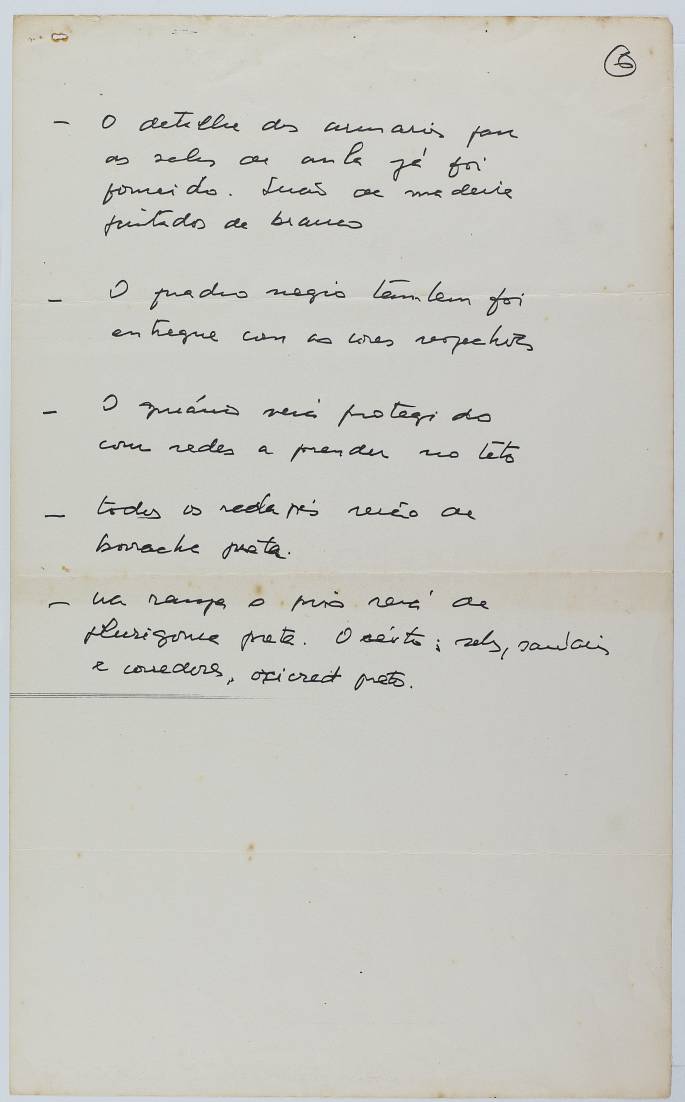 6
- O detalhe dos armarios para
as salas de aula já foi
fornecido. Serão de madeira
pintados de branco
- O quadro negro também foi
entregue com as cores respectivas
- O ginásio será protegido
com redes a prender no této
- todos os rodapés serão de
borracha preta.
- na rampa o piso será de
plurigoma preta. O résto: salas, sanitários
e corredores, oxicret preto.